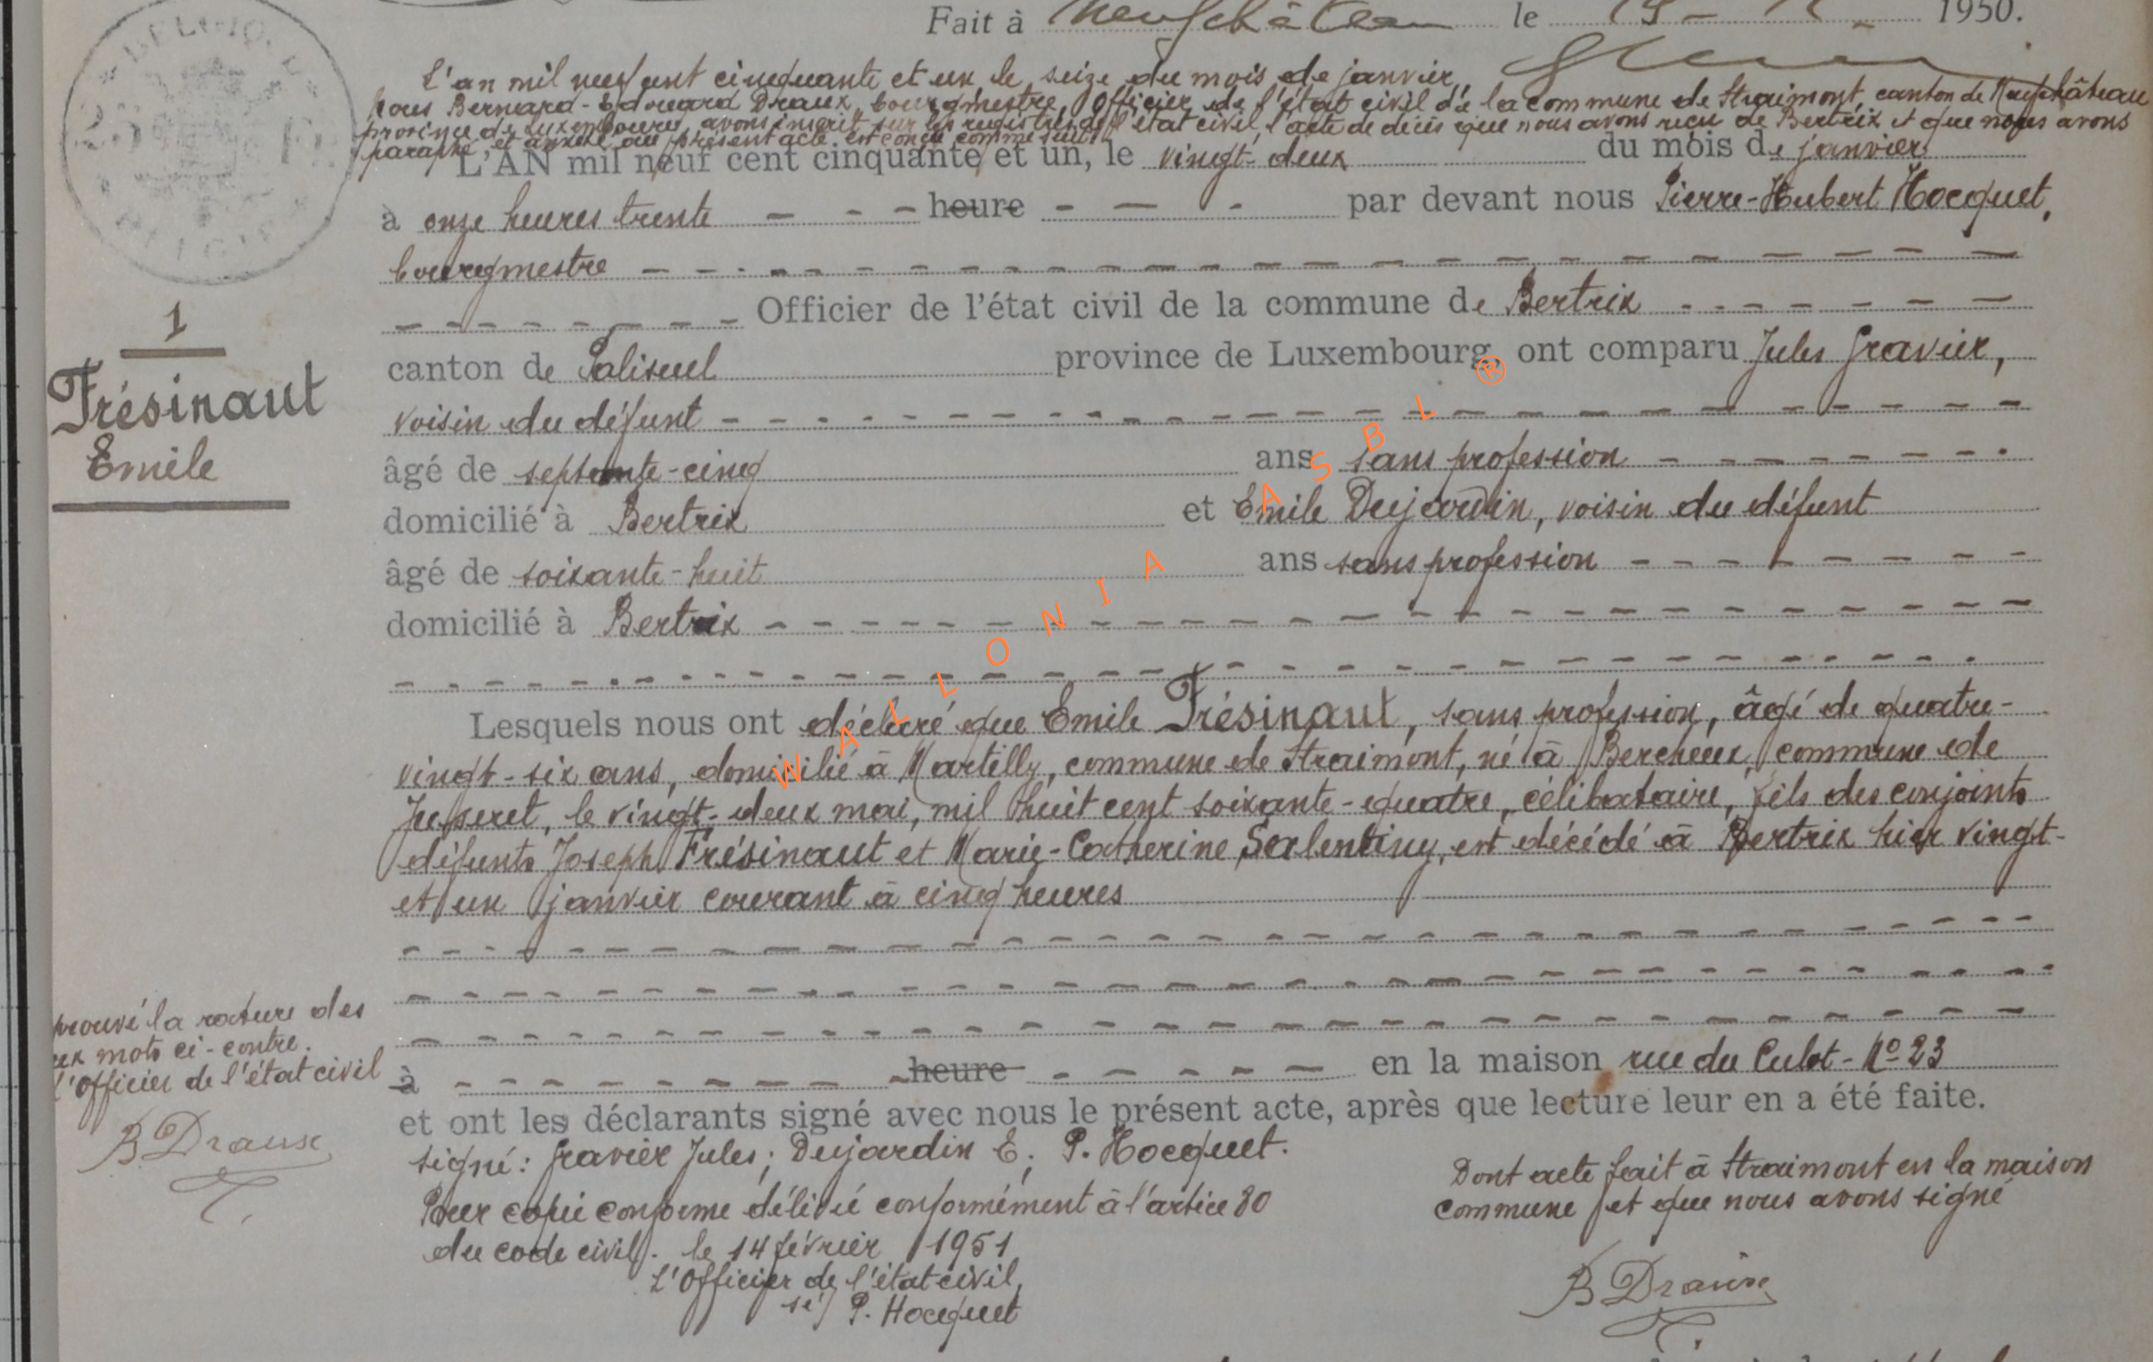 Fait à Neufchâteau le 1950.
BELGIQUE
L'an mil neuf cent cinquante et un le seize du mois de janvier,
Nous Bernard-Edouard Draux, bourgmestre, Officier de l'état civil de la commune de Straimont, canton de Neufchâteau
province de Luxembourg, avons inscrit sur les registres de l'état civil, l'acte de décès que nous avons reçu de Bertrix et que nous avons
paraphé, et annexé au présent acte est conçu comme suit:
L'AN mil neuf cent cinquante et un, le vingt-deux du mois de janvier
à onze heures trente - - - heure - - - par devant nous Pierre-Hubert Hocquet,
bourgmestre
Officier de l'état civil de la commune de Bertrix
1
canton de Paliseul province de Luxembourg, ont comparu Jules Gravier,
Frésinaut
voisin du défunt
Emile
âgé de septante-cinq ans sans profession
domicilié à Bertrix et Emile Dujardin, voisin du défunt
âgé de soixante-huit ans sans profession
domicilié à Bertrix
WALLONIA ASBL ®
Lesquels nous ont déclaré que Emile Frésinaut, sans profession, âgé de quatre-
vingt-six ans, domicilié à Martilly, commune de Straimont, né à Bercheux, commune de
Juseret, le vingt-deux mai, mil huit cent soixante-quatre, célibataire, fils des conjoints
défunts Joseph Frésinaut et Marie-Catherine Salentiny, est décédé à Bertrix hier vingt-
et un janvier courant à cinq heures
prouvé la rature des
ux mots ci-contre.
l'Officier de l'état civil
B Draux
à - - - heure - - - en la maison rue du Culot - No 23
et ont les déclarants signé avec nous le présent acte, après que lecture leur en a été faite.
signé: Gravier Jules; Dujardin E; P. Hocquet.
Pour copie conforme délivré conformément à l'artice 80
du code civil. le 14 février 1951
L'Officier de l'état civil,
sé) P. Hocquet
Dont acte fait à Straimont en la maison
commune et que nous avons signé
B Draux